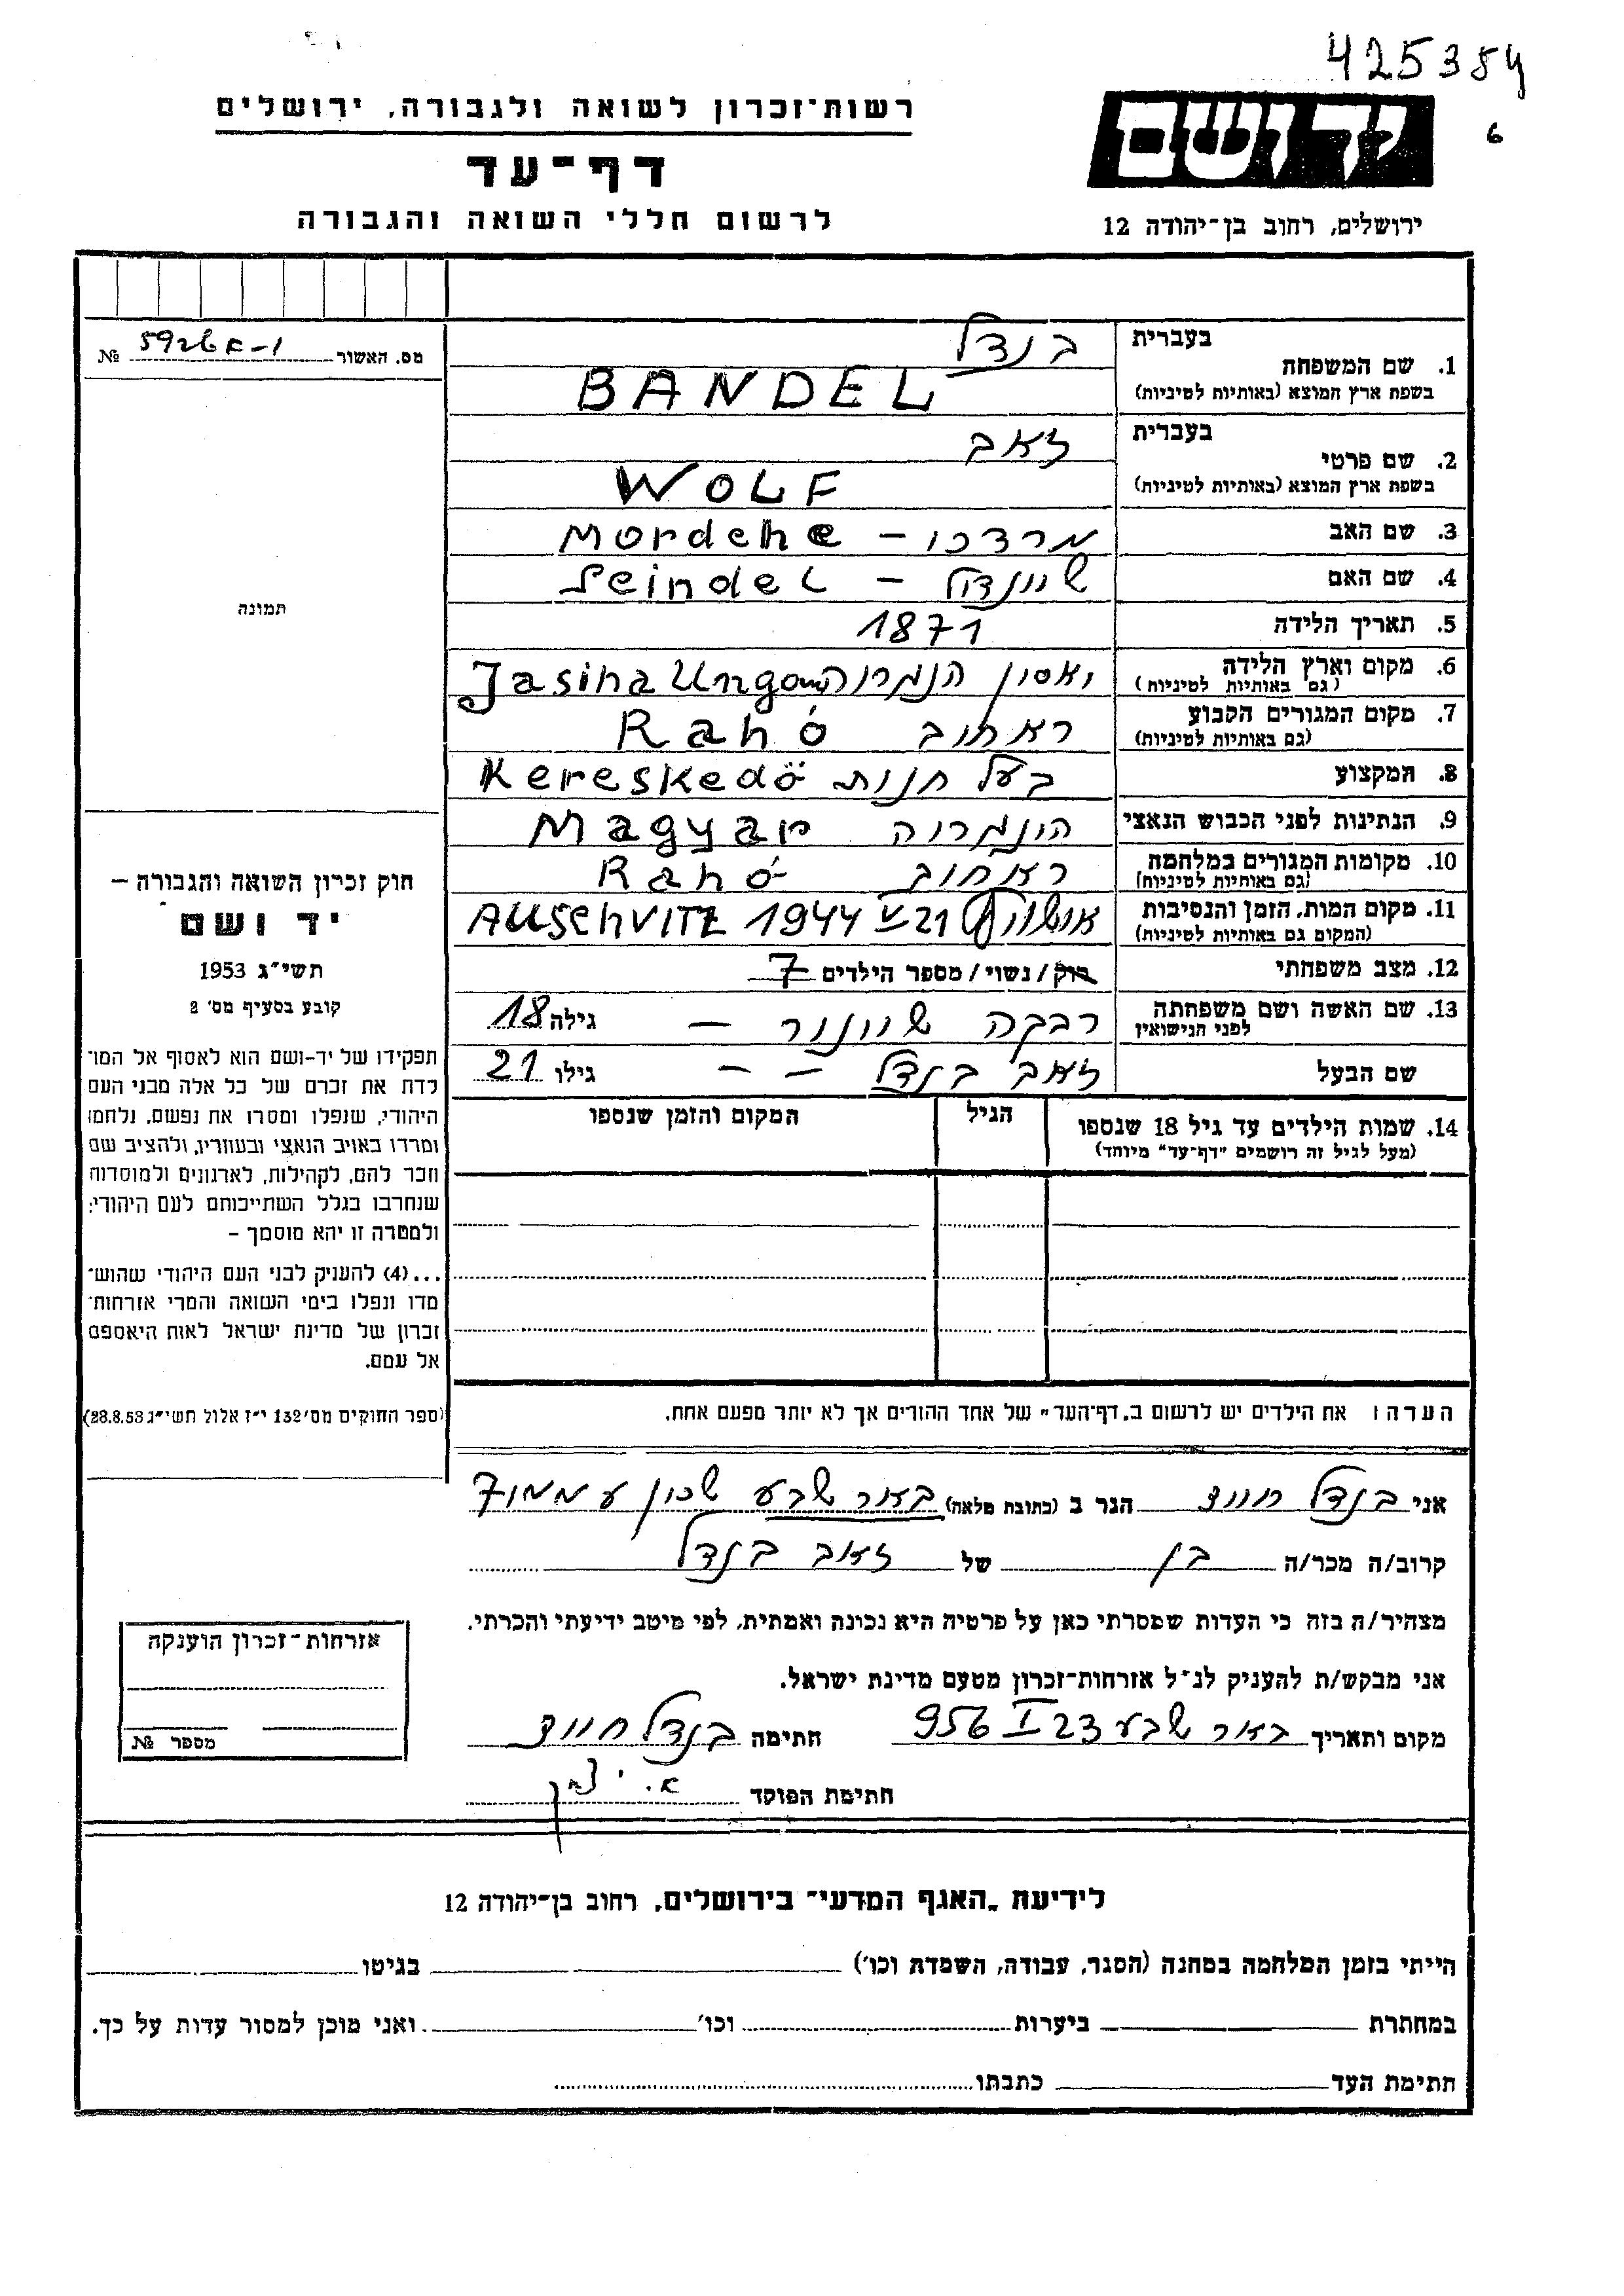 425354
6
רשות־זכרון לשואה ולגבורה, ירושלים
יד ושם
דף־עד
לרשום חללי השואה והגבורה
ירושלים, רחוב בן־יהודה 12
מס. האשור № 
בעברית בנדל
1. שם המשפחה
בשפת ארץ המוצא (באותיות לטיניות) BANDEL
בעברית זאב
2. שם פרטי
בשפת ארץ המוצא (באותיות לטיניות) WOLF
3. שם האב מרדכי - Mordche
4. שם האם שיינדל - Seindel
5. תאריך הלידה 1871
6. מקום וארץ הלידה (גם באותיות לטיניות) Jasina
7. מקום המגורים הקבוע (גם באותיות לטיניות) ראחוב Rahó
8. המקצוע בעל חנות Kereskedö
9. הנתינות לפני הכבוש הנאצי הונגריה Magyar
10. מקומות המגורים במלחמה (גם באותיות לטיניות) ראחוב Rahó
11. מקום המות, הזמן והנסיבות (המקום גם באותיות לטיניות) AUSCHVITZ 1944 V 21
12. מצב משפחתי רוק / נשוי / מספר הילדים 7
13. שם האשה ושם משפחתה לפני הנישואין רבקה - גילה 18
שם הבעל זאב בנדל - - גילו 21
14. שמות הילדים עד גיל 18 שנספו (מעל לגיל זה רושמים "דף־עד" מיוחד)
הגיל
המקום והזמן שנספו
תמונה
חוק זכרון השואה והגבורה –
יד ושם
תשי"ג 1953
קובע בסעיף מס' 2
תפקידו של יד-ושם הוא לאסוף אל המו־
לדת את זכרם של כל אלה מבני העם
היהודי, שנפלו ומסרו את נפשם, נלחמו
ומרדו באויב הנאצי ובעוזריו, ולהציב שם
וזכר להם, לקהילות, לארגונים ולמוסדות
שנחרבו בגלל השתייכותם לעם היהודי;
ולמטרה זו יהא מוסמך –
...(4) להעניק לבני העם היהודי שהוש־
מדו ונפלו בימי השואה והמרי אזרחות־
זכרון של מדינת ישראל לאות היאספם
אל עמם.
(ספר החוקים מס' 132 י"ז אלול תשי"ג 28.8.53)
הערה: את הילדים יש לרשום ב„דף־העד" של אחד ההורים אך לא יותר מפעם אחת.
אני בנדל הגר ב (כתובת מלאה) באר שבע שכון
קרוב/ה מכר/ה בן של זאב בנדל
מצהיר/ה בזה כי העדות שמסרתי כאן על פרטיה היא נכונה ואמתית, לפי מיטב ידיעתי והכרתי.
אני מבקש/ת להעניק לנ"ל אזרחות־זכרון מטעם מדינת ישראל.
מקום ותאריך באר שבע 23 I 956 חתימה בנדל
חתימת הפוקד
אזרחות־זכרון הוענקה
מספר №
לידיעת „האגף המדעי" בירושלים, רחוב בן־יהודה 12
הייתי בזמן המלחמה במחנה (הסגר, עבודה, השמדת וכו') בגיטו
במחתרת ביערות וכו' ואני מוכן למסור עדות על כך.
חתימת העד כתבתו